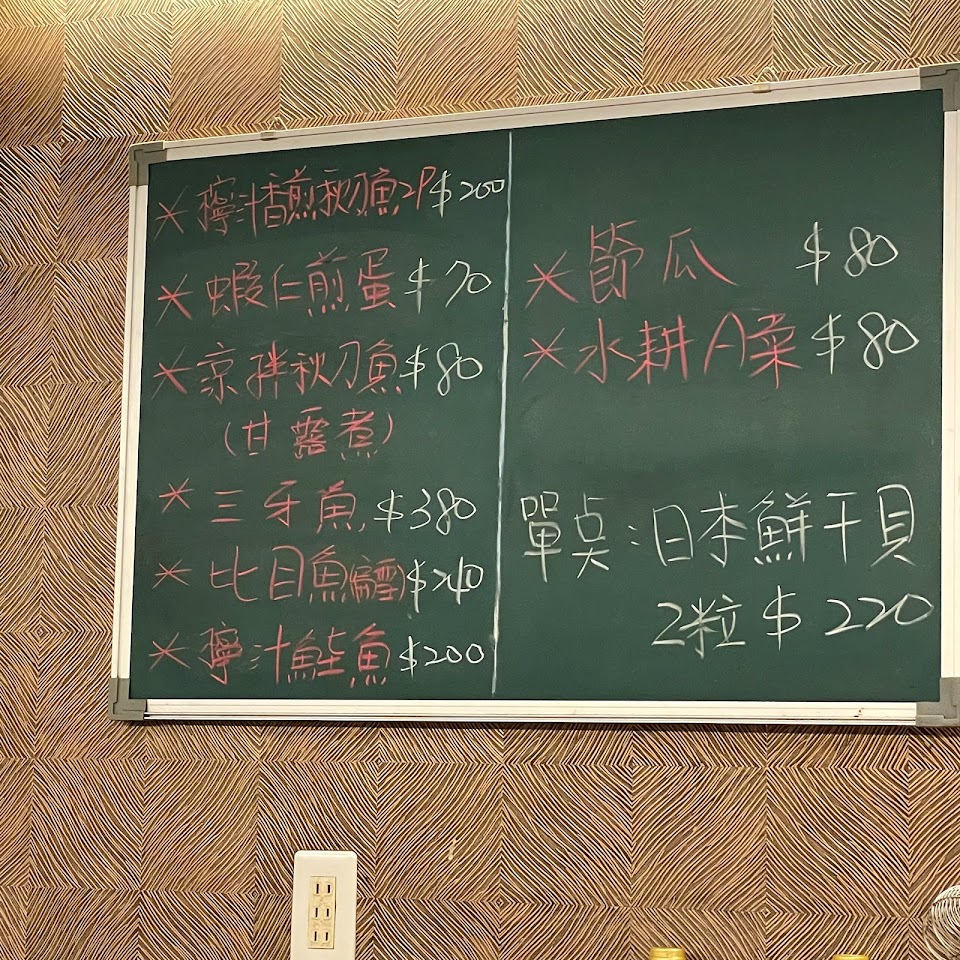 *檸汁香煎秋刀魚2P$200
*蝦仁煎蛋$70
*涼拌秋刀魚$80
(甘露煮)
*三牙魚$380
*比目魚(扁雪)$240
*檸汁鮭魚$200
*節瓜 $80
*水耕A菜$80
單点:日本鮮干貝
2粒$220